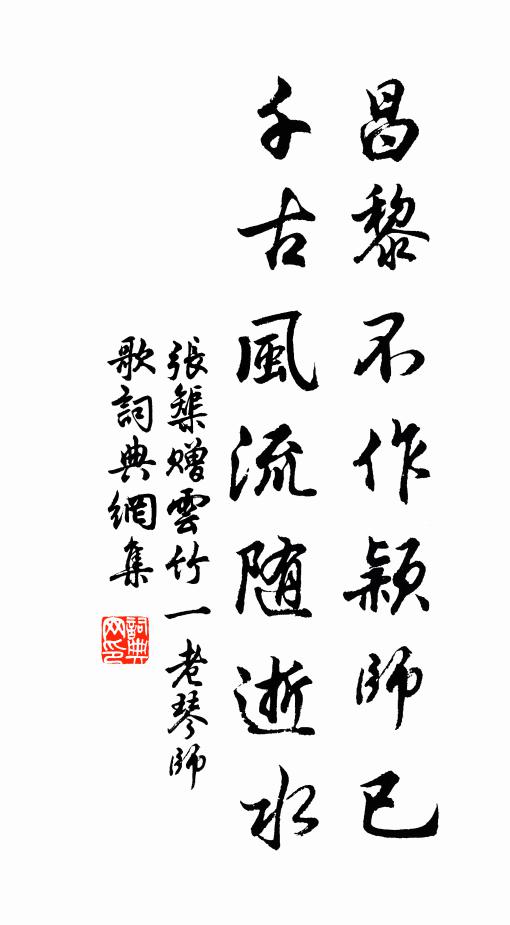 昌黎不作颖師已
千古風流随逝水
張榘贈雲竹一老琴師
歌詞典網集
詞典网印